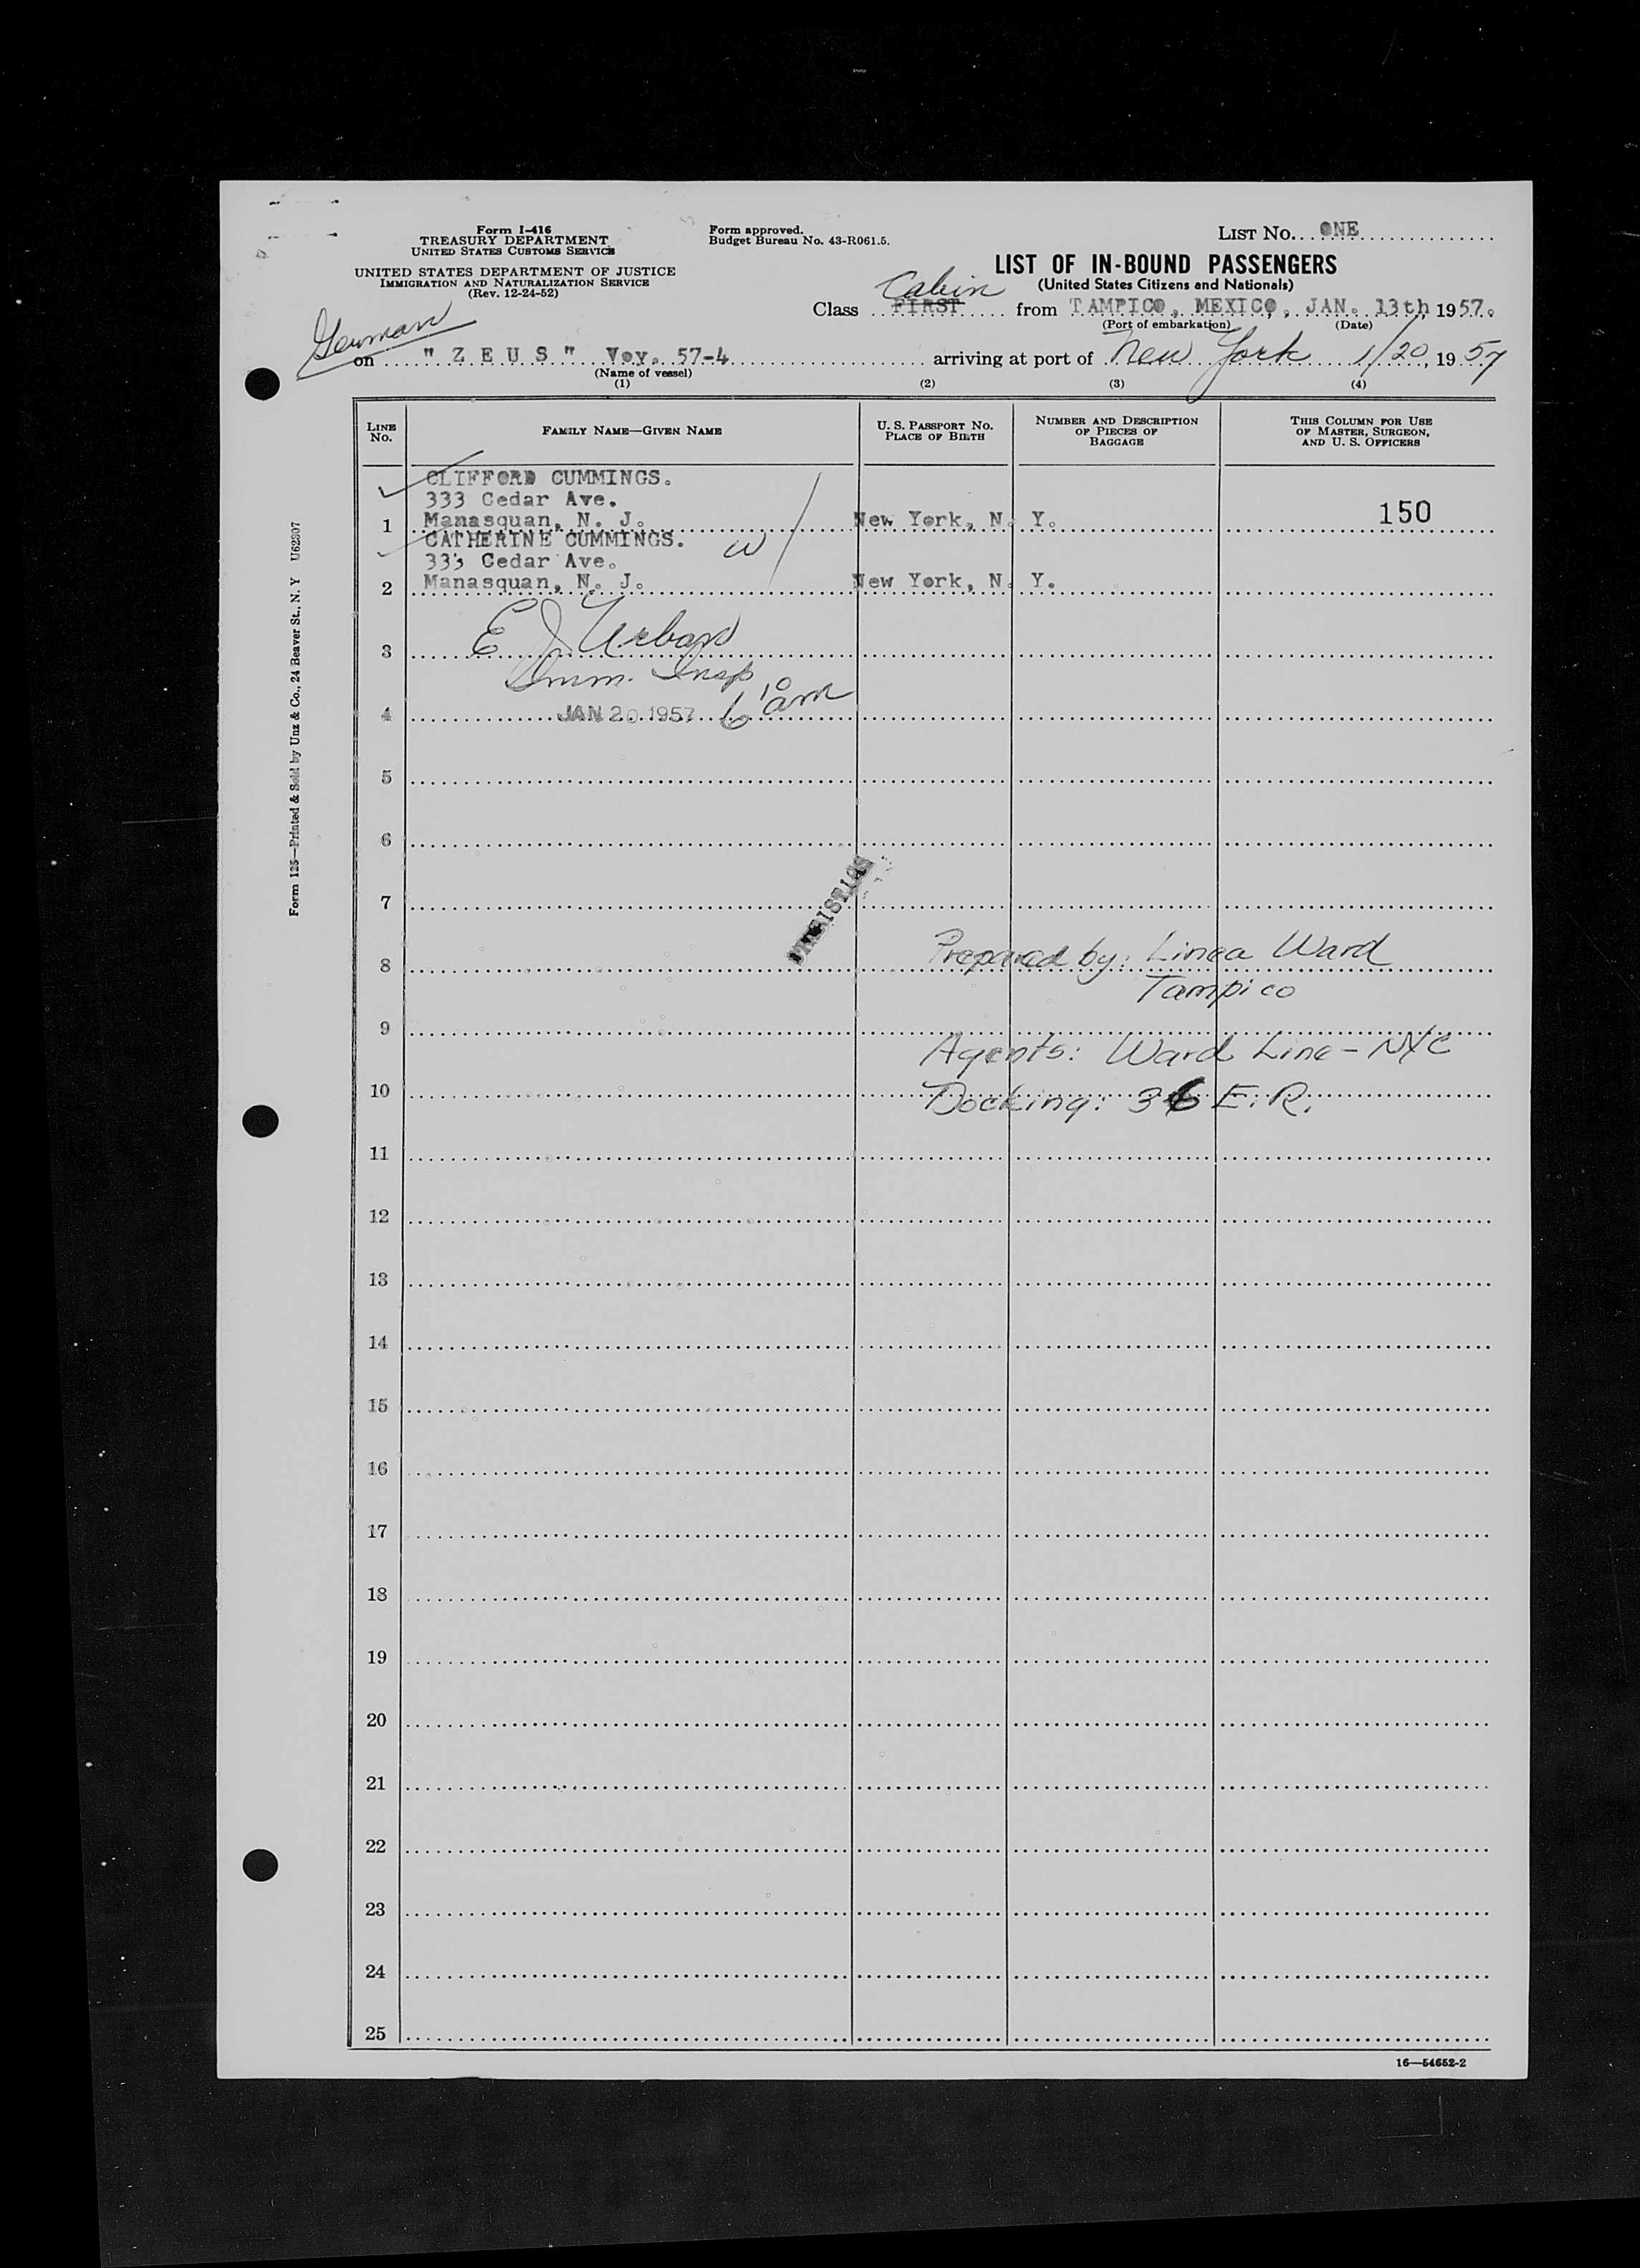 Form I-416
TREASURY DEPARTMENT
UNITED STATES CUSTOMS SERVICE
UNITED STATES DEPARTMENT OF JUSTICE
IMMIGRATION AND NATURALIZATION SERVICE
(Rev. 12-24-52)
Form approved.
Budget Bureau No. 43-R061.5.
LIST No. ONE
LIST OF IN-BOUND PASSENGERS
(United States Citizens and Nationals)
Cabin
Class FIRST from TAMPICO, MEXICO, JAN. 13th, 1957.
(Port of embarkation) (Date)
German
on "ZEUS" Voy. 57-4 arriving at port of New York 1/20, 1957
(Name of vessel)
(1) (2) (3) (4)
LINE No. FAMILY NAME—GIVEN NAME U. S. PASSPORT NO. PLACE OF BIRTH NUMBER AND DESCRIPTION OF PIECES OF BAGGAGE THIS COLUMN FOR USE OF MASTER, SURGEON, AND U. S. OFFICERS
CLIFFORD CUMMINGS.
333 Cedar Ave.
1 Manasquan, N. J. New York, N. Y. 150
CATHERINE CUMMINGS. W
333 Cedar Ave.
2 Manasquan, N. J. New York, N. Y.
3 E J Urban
Imm. Insp
4 JAN 20 1957 6 10 am
5
6
7
8 Prepared by: Linea Ward
Tampico
9
Agents: Ward Line - NYC
10 Docking: 36 E. R.
11
12
13
14
15
16
17
18
19
20
21
22
23
24
25
16—54652-2
Form 125—Printed & Sold by Unz & Co., 24 Beaver St., N. Y U62307